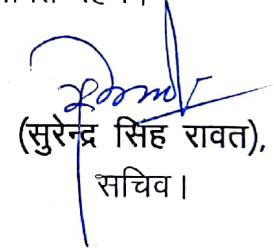 (सुरेन्द्र सिंह रावत),
सचिव।